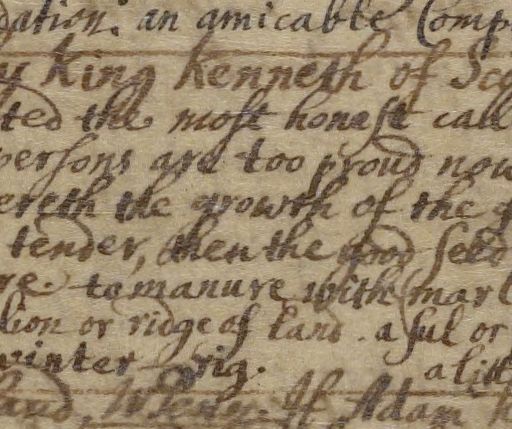 dation. an amicable Comp
y King Kenneth of Sco
ted the most honest call
persons are too proud now
ereth the growth of the g
tender, then the good seed
re. to manure with marl
lion or ridge of land. a sul or
winter-rig. a litt
land, When. If Adam